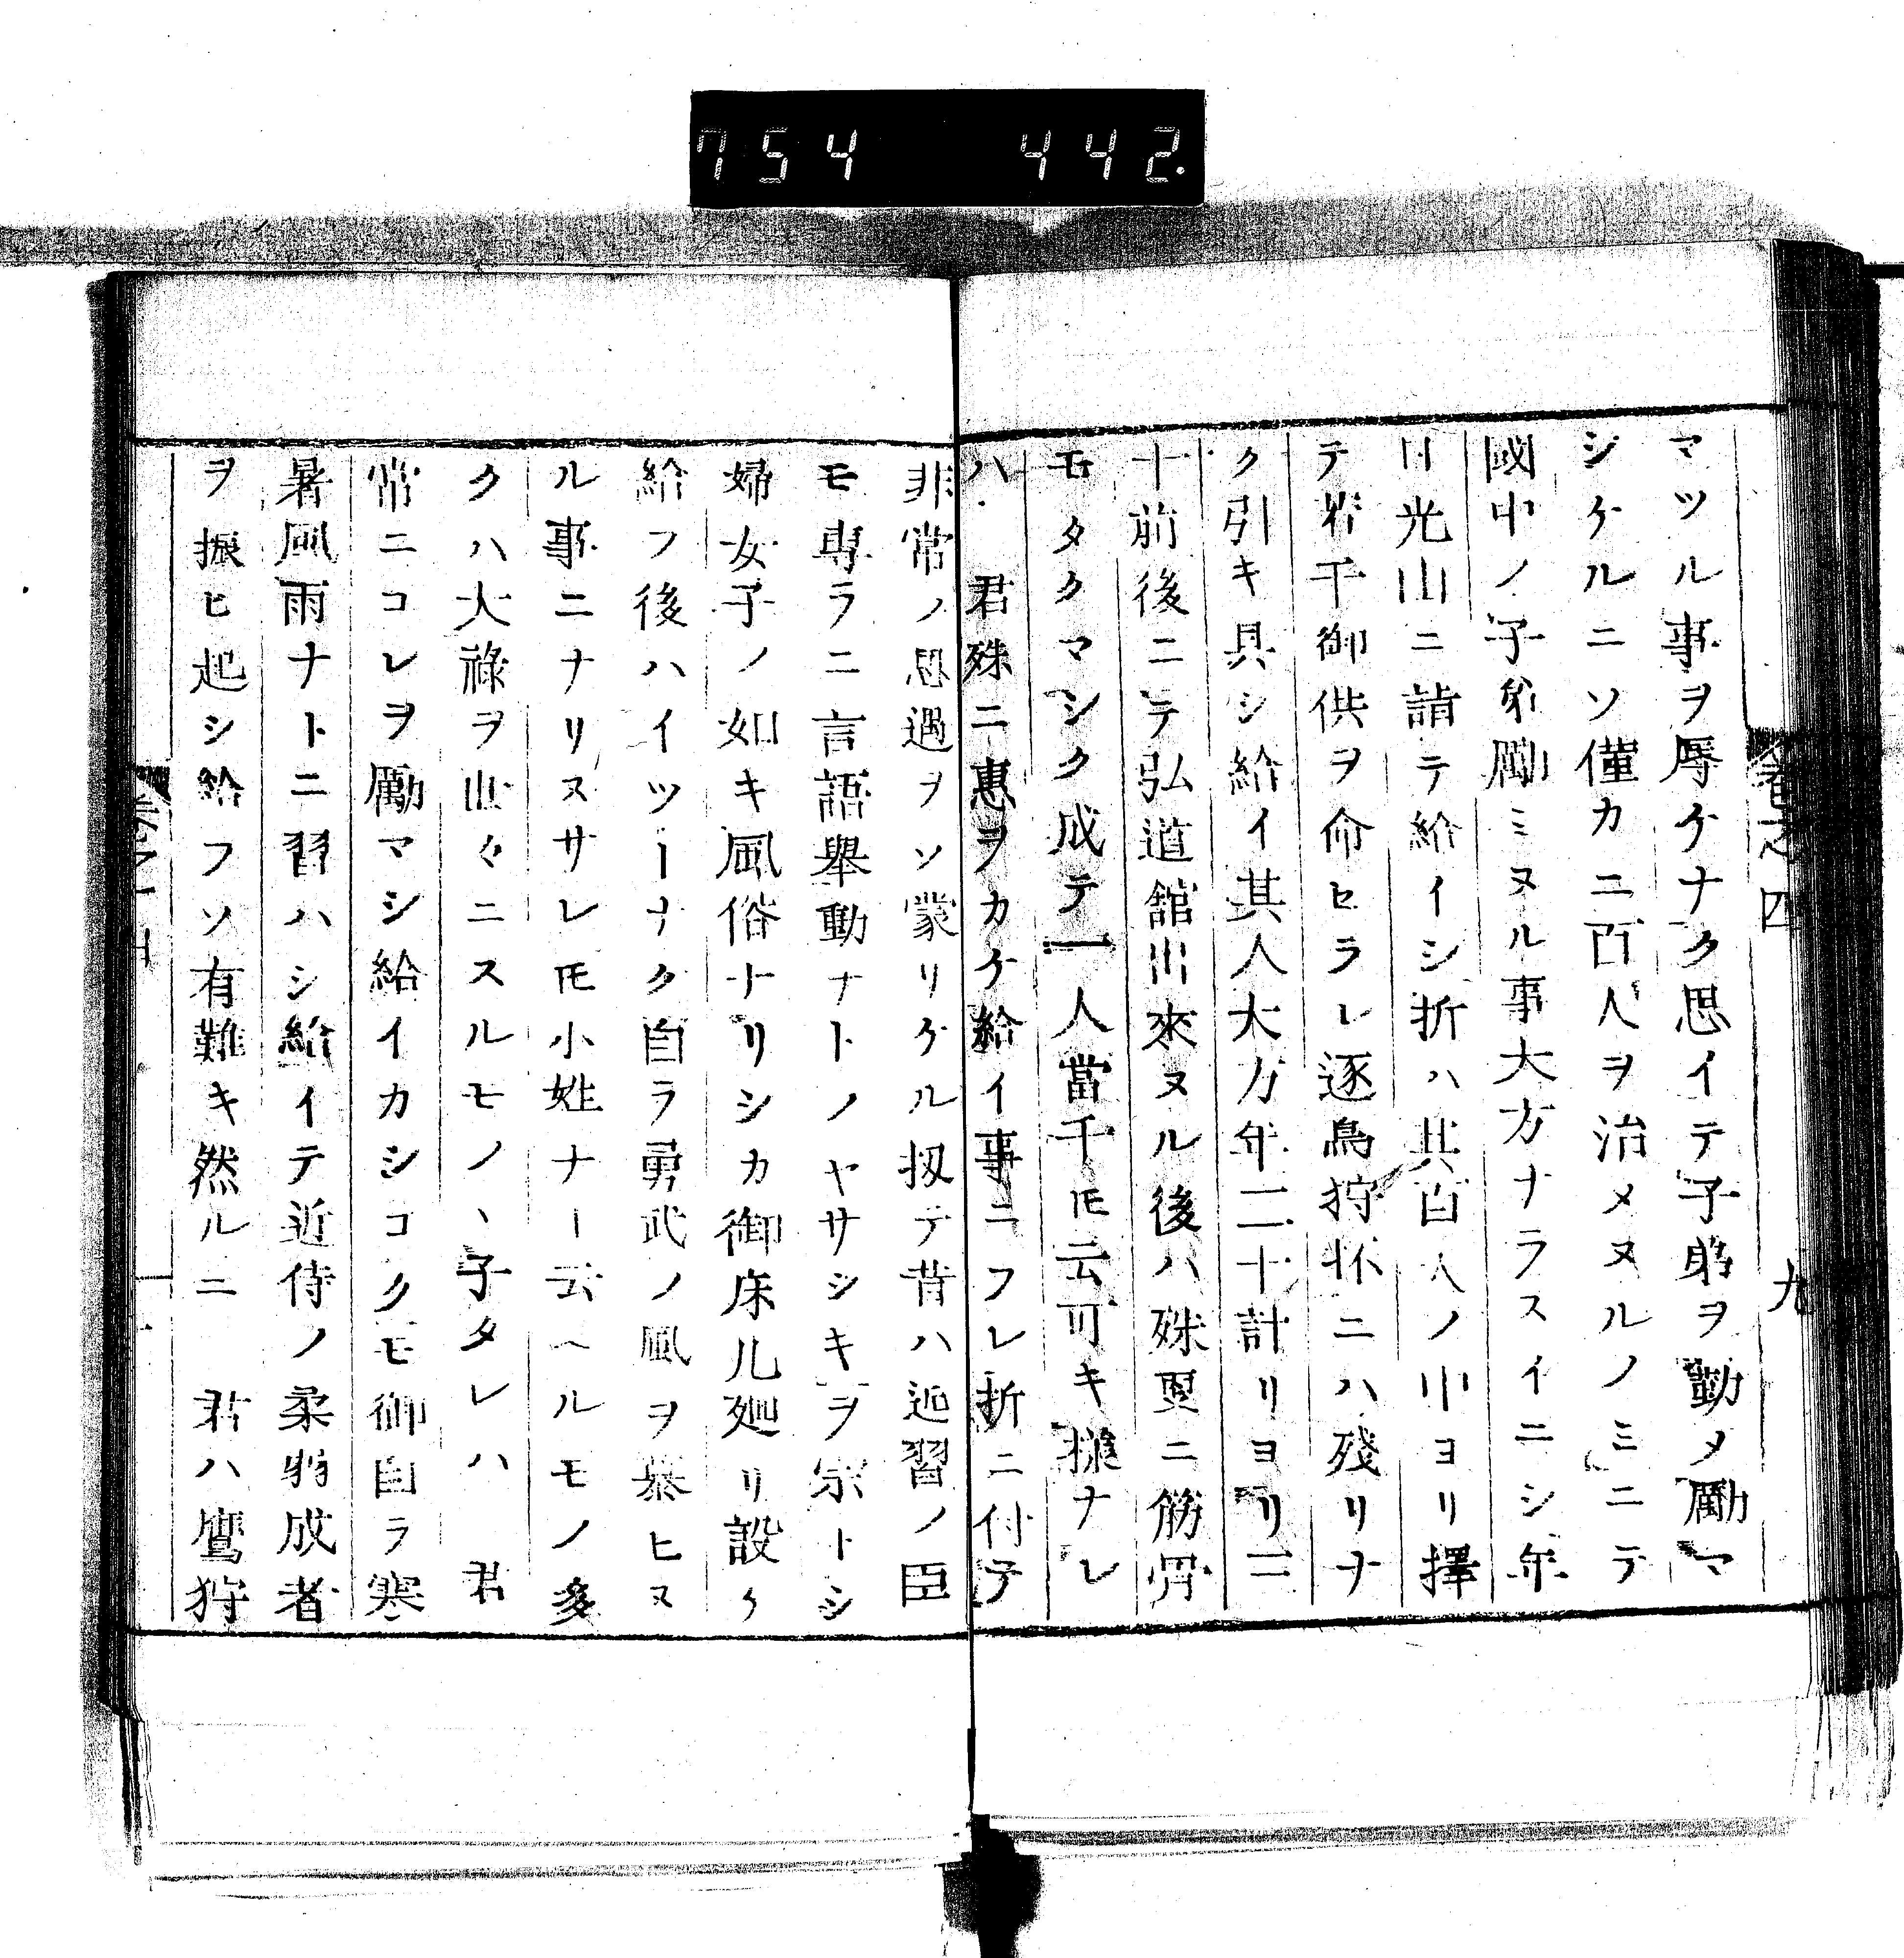 754 442.
卷之四 九
マツル事ヲ辱ケナク思イテ子弟ヲ勤メ勵マ
シケルニソ僅カニ百人ヲ治メヌルノミニテ
國中ノ子弟勵ミヌル事大方ナラスイニシ年
日光山ニ詣テ給イシ折ハ其百人ノ中ヨリ擇
テ若干御供ヲ命セラレ逐鳥狩抔ニハ殘リナ
ク引キ具シ給イ其人大方年二十計リヨリ三
十前後ニテ弘道舘出來ヌル後ハ殊更ニ筋骨
モタクマシク成テ一人當千𪜈云可キ樣ナレ
ハ 君殊ニ惠ヲカケ給イ事ニフレ折ニ付テ
非常ノ恩遇ヲソ蒙リケル扨テ昔ハ近習ノ臣
モ專ラニ言語舉動ナトノヤサシキヲ宗トシ
婦女子ノ如キ風俗ナリシカ御床几廻リ設ケ
給フ後ハイツーナク自ラ勇武ノ風ヲ慕ヒヌ
ル事ニナリヌサレ𪜈小姓ナー云ヘルモノ多
クハ大祿ヲ世々ニスルモノヽ子タレハ 君
常ニコレヲ勵マシ給イカシコクモ御自ラ寒
暑風雨ナトニ習ハシ給イテ近侍ノ柔弱成者
ヲ振ヒ起シ給フソ有難キ然ルニ 君ハ鷹狩